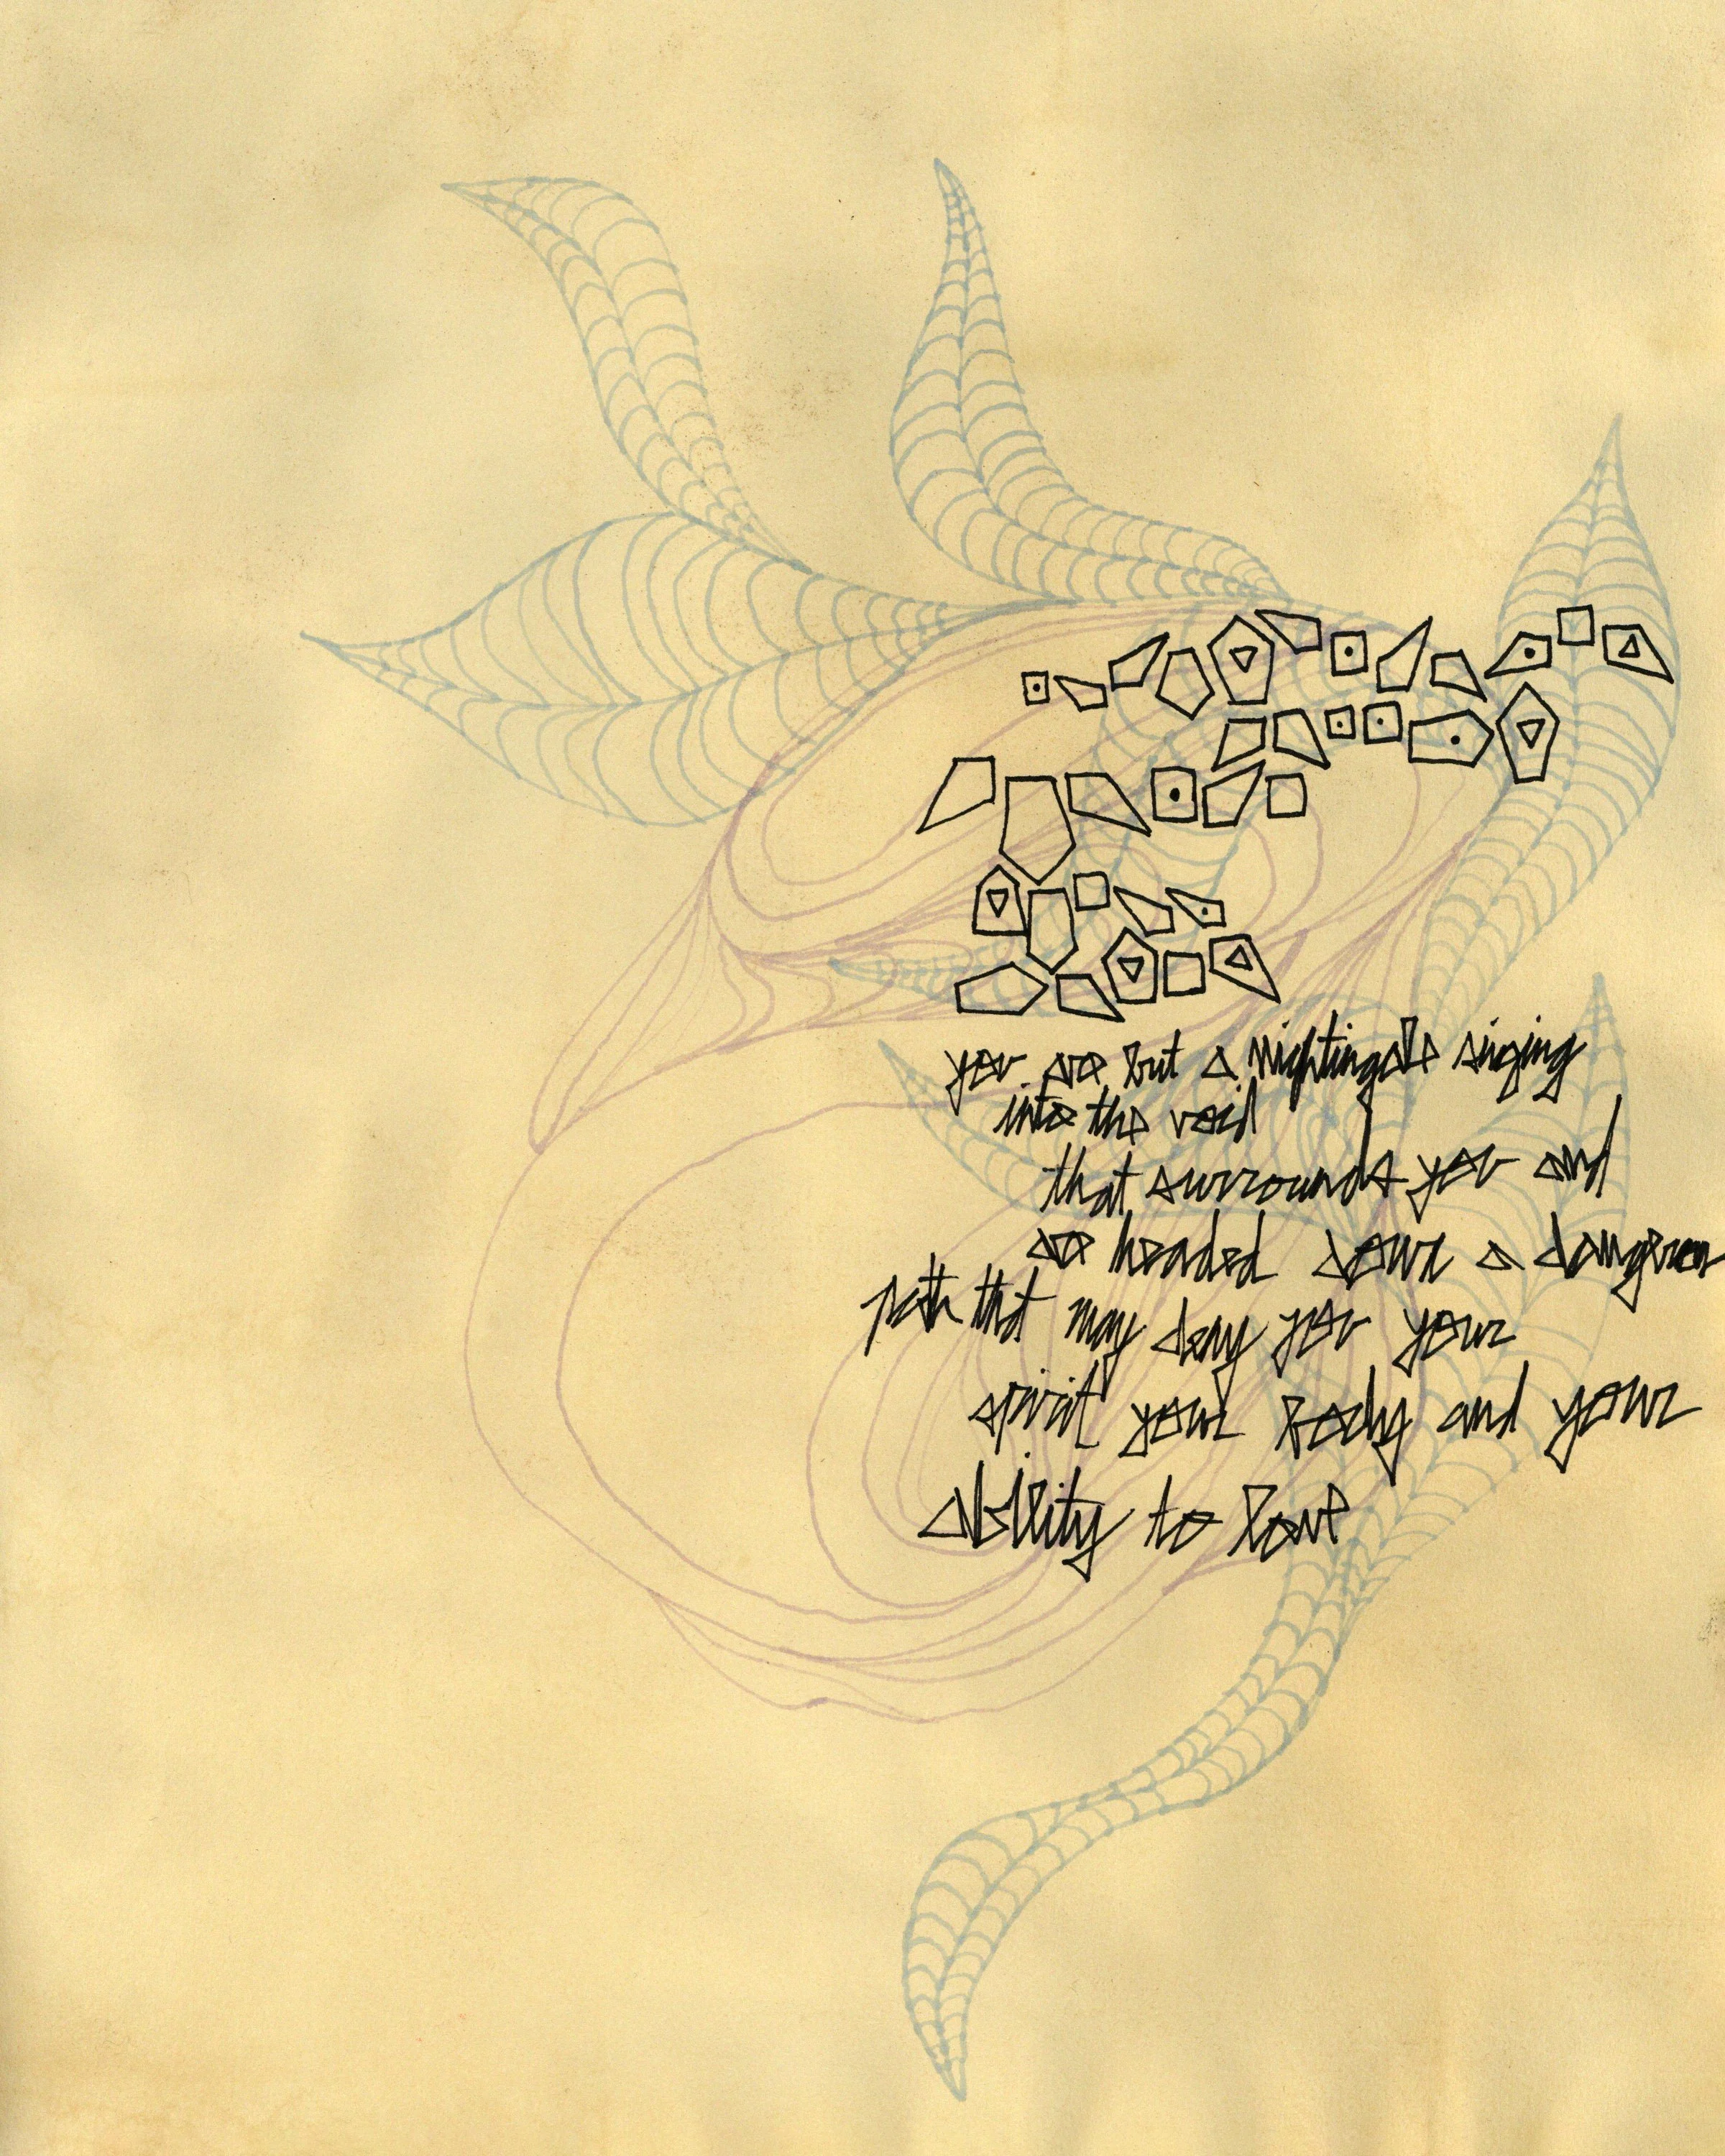 you are but a nightingale singing
into the void
that surrounds you and
are headed down a dangerous
path that may deny you your
spirit your body and your
ability to love